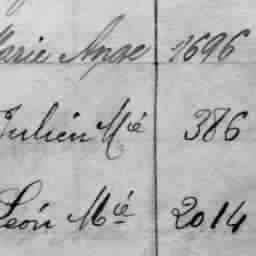 Marie Ange 1696
Julien Mié 386
Léon Mié 2014